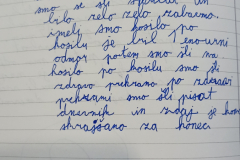 smo se šli
bilo zelo zelo zabavno.
imeli smo kosilo po
kosilu je bil 1 enourni
odmor potem smo šli na
kosilo po kosilu smo šli
zdravo prehrano po zdravi
prehrani smo šli pisat
dnevnik in zdaj je konec
skrajšano za konec